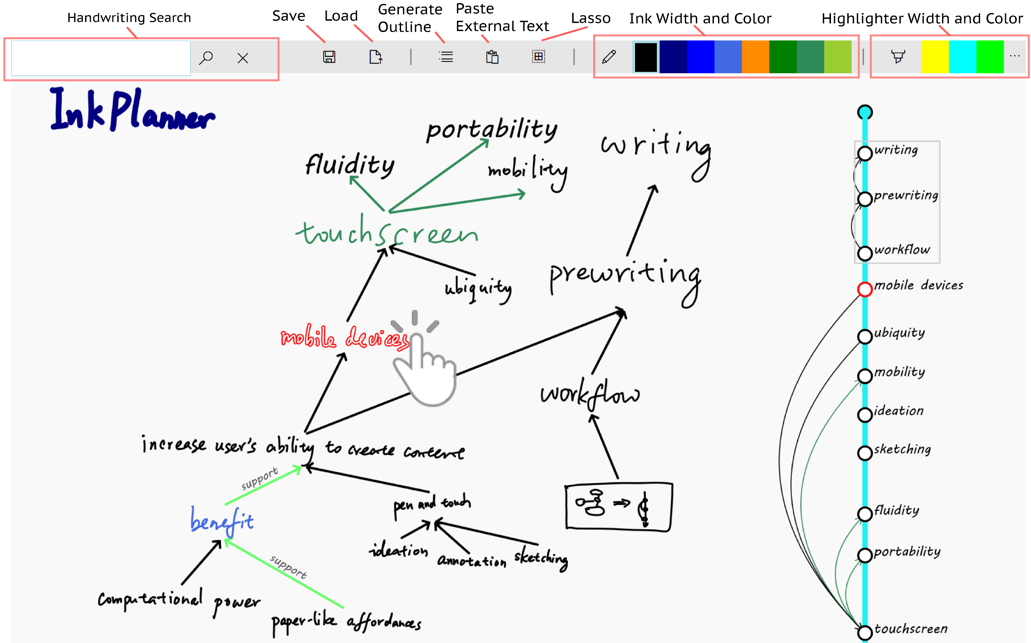 Handwriting Search
Save
Load
Generate
Outline
Paste
External Text
Lasso
Ink Width and Color
Highlighter Width and Color
InkPlanner
portability
fluidity
mobility
writing
touchscreen
ubiquity
prewriting
mobile devices
workflow
increase user's ability to create content
support
benefit
pen and touch
ideation
annotation
sketching
support
computational power
paper-like affordances
writing
prewriting
workflow
mobile devices
ubiquity
mobility
ideation
sketching
fluidity
portability
touchscreen